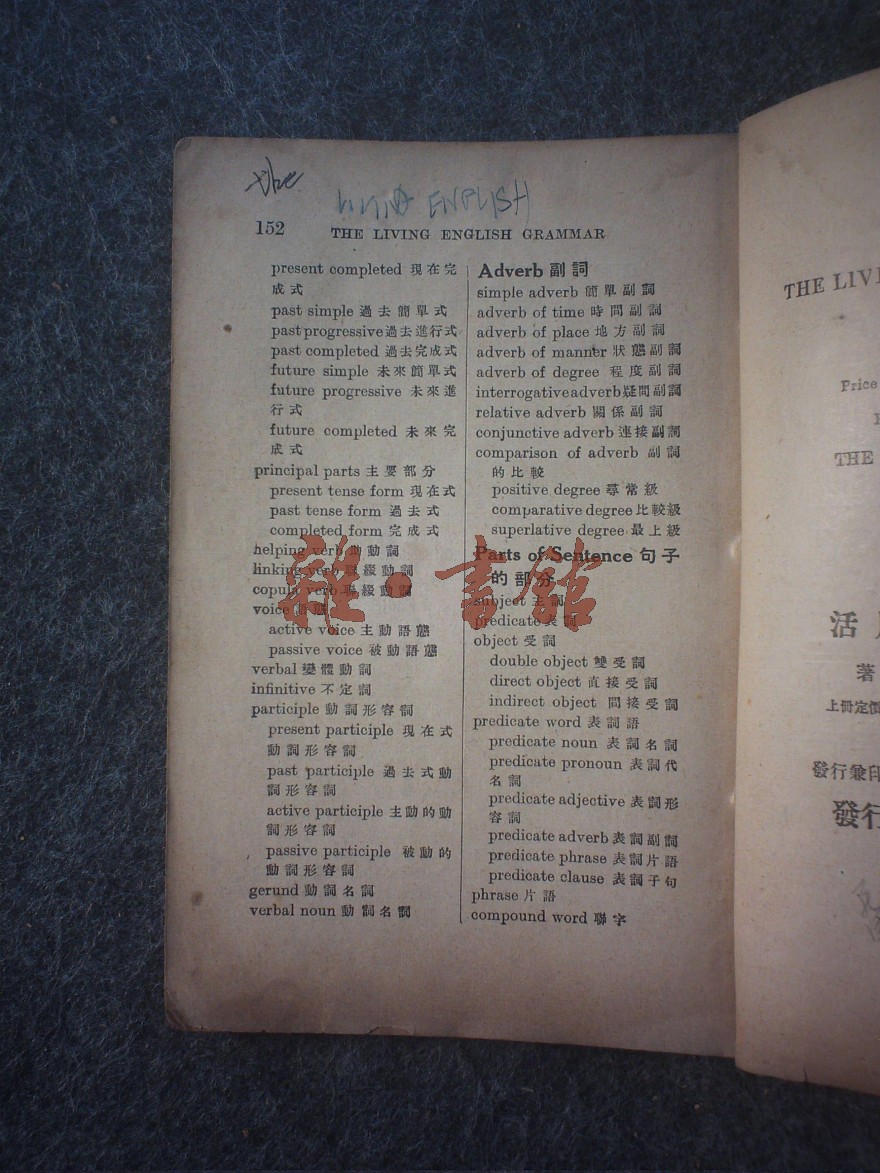 the
LIVING ENGLISH
152 THE LIVING ENGLISH GRAMMAR
present completed 現在完
成式
past simple 過去簡單式
past progressive 過去進行式
past completed 過去完成式
future simple 未來簡單式
future progressive 未來進
行式
future completed 未來完
成式
principal parts 主要部分
present tense form 現在式
past tense form 過去式
completed form 完成式
helping verb 助動詞
linking verb 聯綴動詞
copula verb 聯綴動詞
voice 語態
active voice 主動語態
passive voice 被動語態
verbal 變體動詞
infinitive 不定詞
participle 動詞形容詞
present participle 現在式
動詞形容詞
past participle 過去式動
詞形容詞
active participle 主動的動
詞形容詞
passive participle 被動的
動詞形容詞
gerund 動詞名詞
verbal noun 動詞名詞
Adverb 副詞
simple adverb 簡單副詞
adverb of time 時間副詞
adverb of place 地方副詞
adverb of manner 狀態副詞
adverb of degree 程度副詞
interrogative adverb 疑問副詞
relative adverb 關係副詞
conjunctive adverb 連接副詞
comparison of adverb 副詞
的比較
positive degree 尋常級
comparative degree 比較級
superlative degree 最上級
Parts of Sentence 句子
的部分
subject 主詞
predicate 表詞
object 受詞
double object 雙受詞
direct object 直接受詞
indirect object 間接受詞
predicate word 表詞語
predicate noun 表詞名詞
predicate pronoun 表詞代
名詞
predicate adjective 表詞形
容詞
predicate adverb 表詞副詞
predicate phrase 表詞片語
predicate clause 表詞子句
phrase 片語
compound word 聯字
雜·書館
THE LIVI
Price
THE
活
著
上冊定價
發行兼印
發行